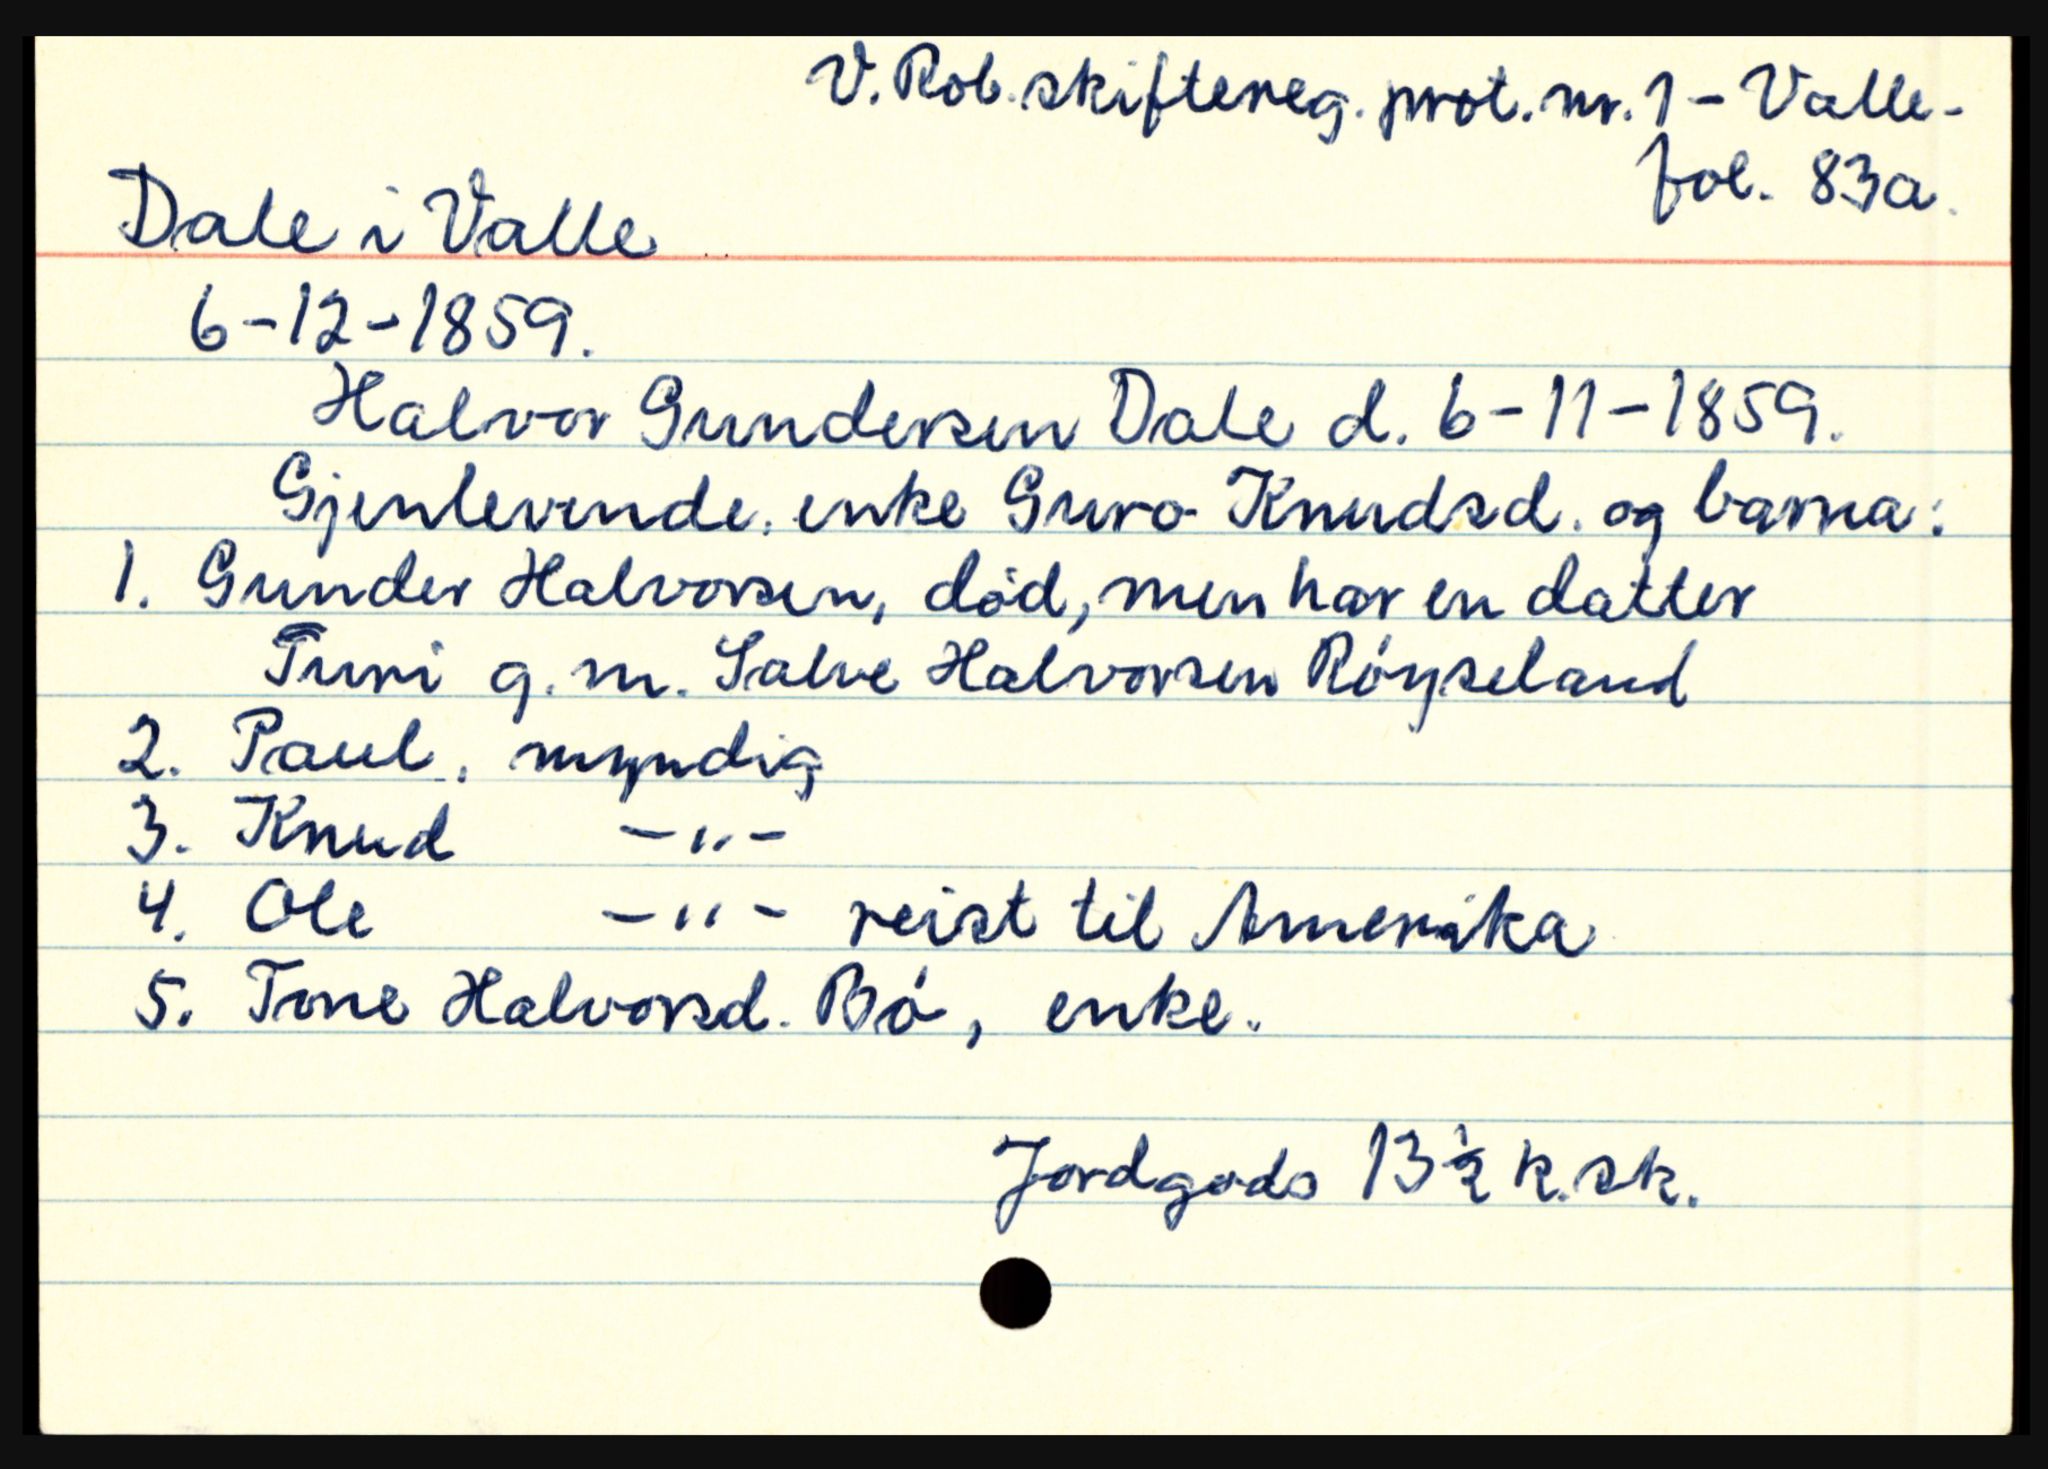 V. Rob. skiftereg. prot. nr. 1 - Valle -
fol. 83a.
Dale i Valle
6-12-1859.
Halvor Gundersen Dale d. 6-11-1859.
Gjenlevende. enke Guro Knudsd. og barna:
1. Gunder Halvorsen, död, men har en datter
Turi g. m. Salve Halvorsen Röyseland
2. Paul, myndig
3. Knud -"-
4. Ole -"- reist til Amerika
5. Tone Halvorsd. Bö, enke.
Jordgods 13 1/2 k. sk.